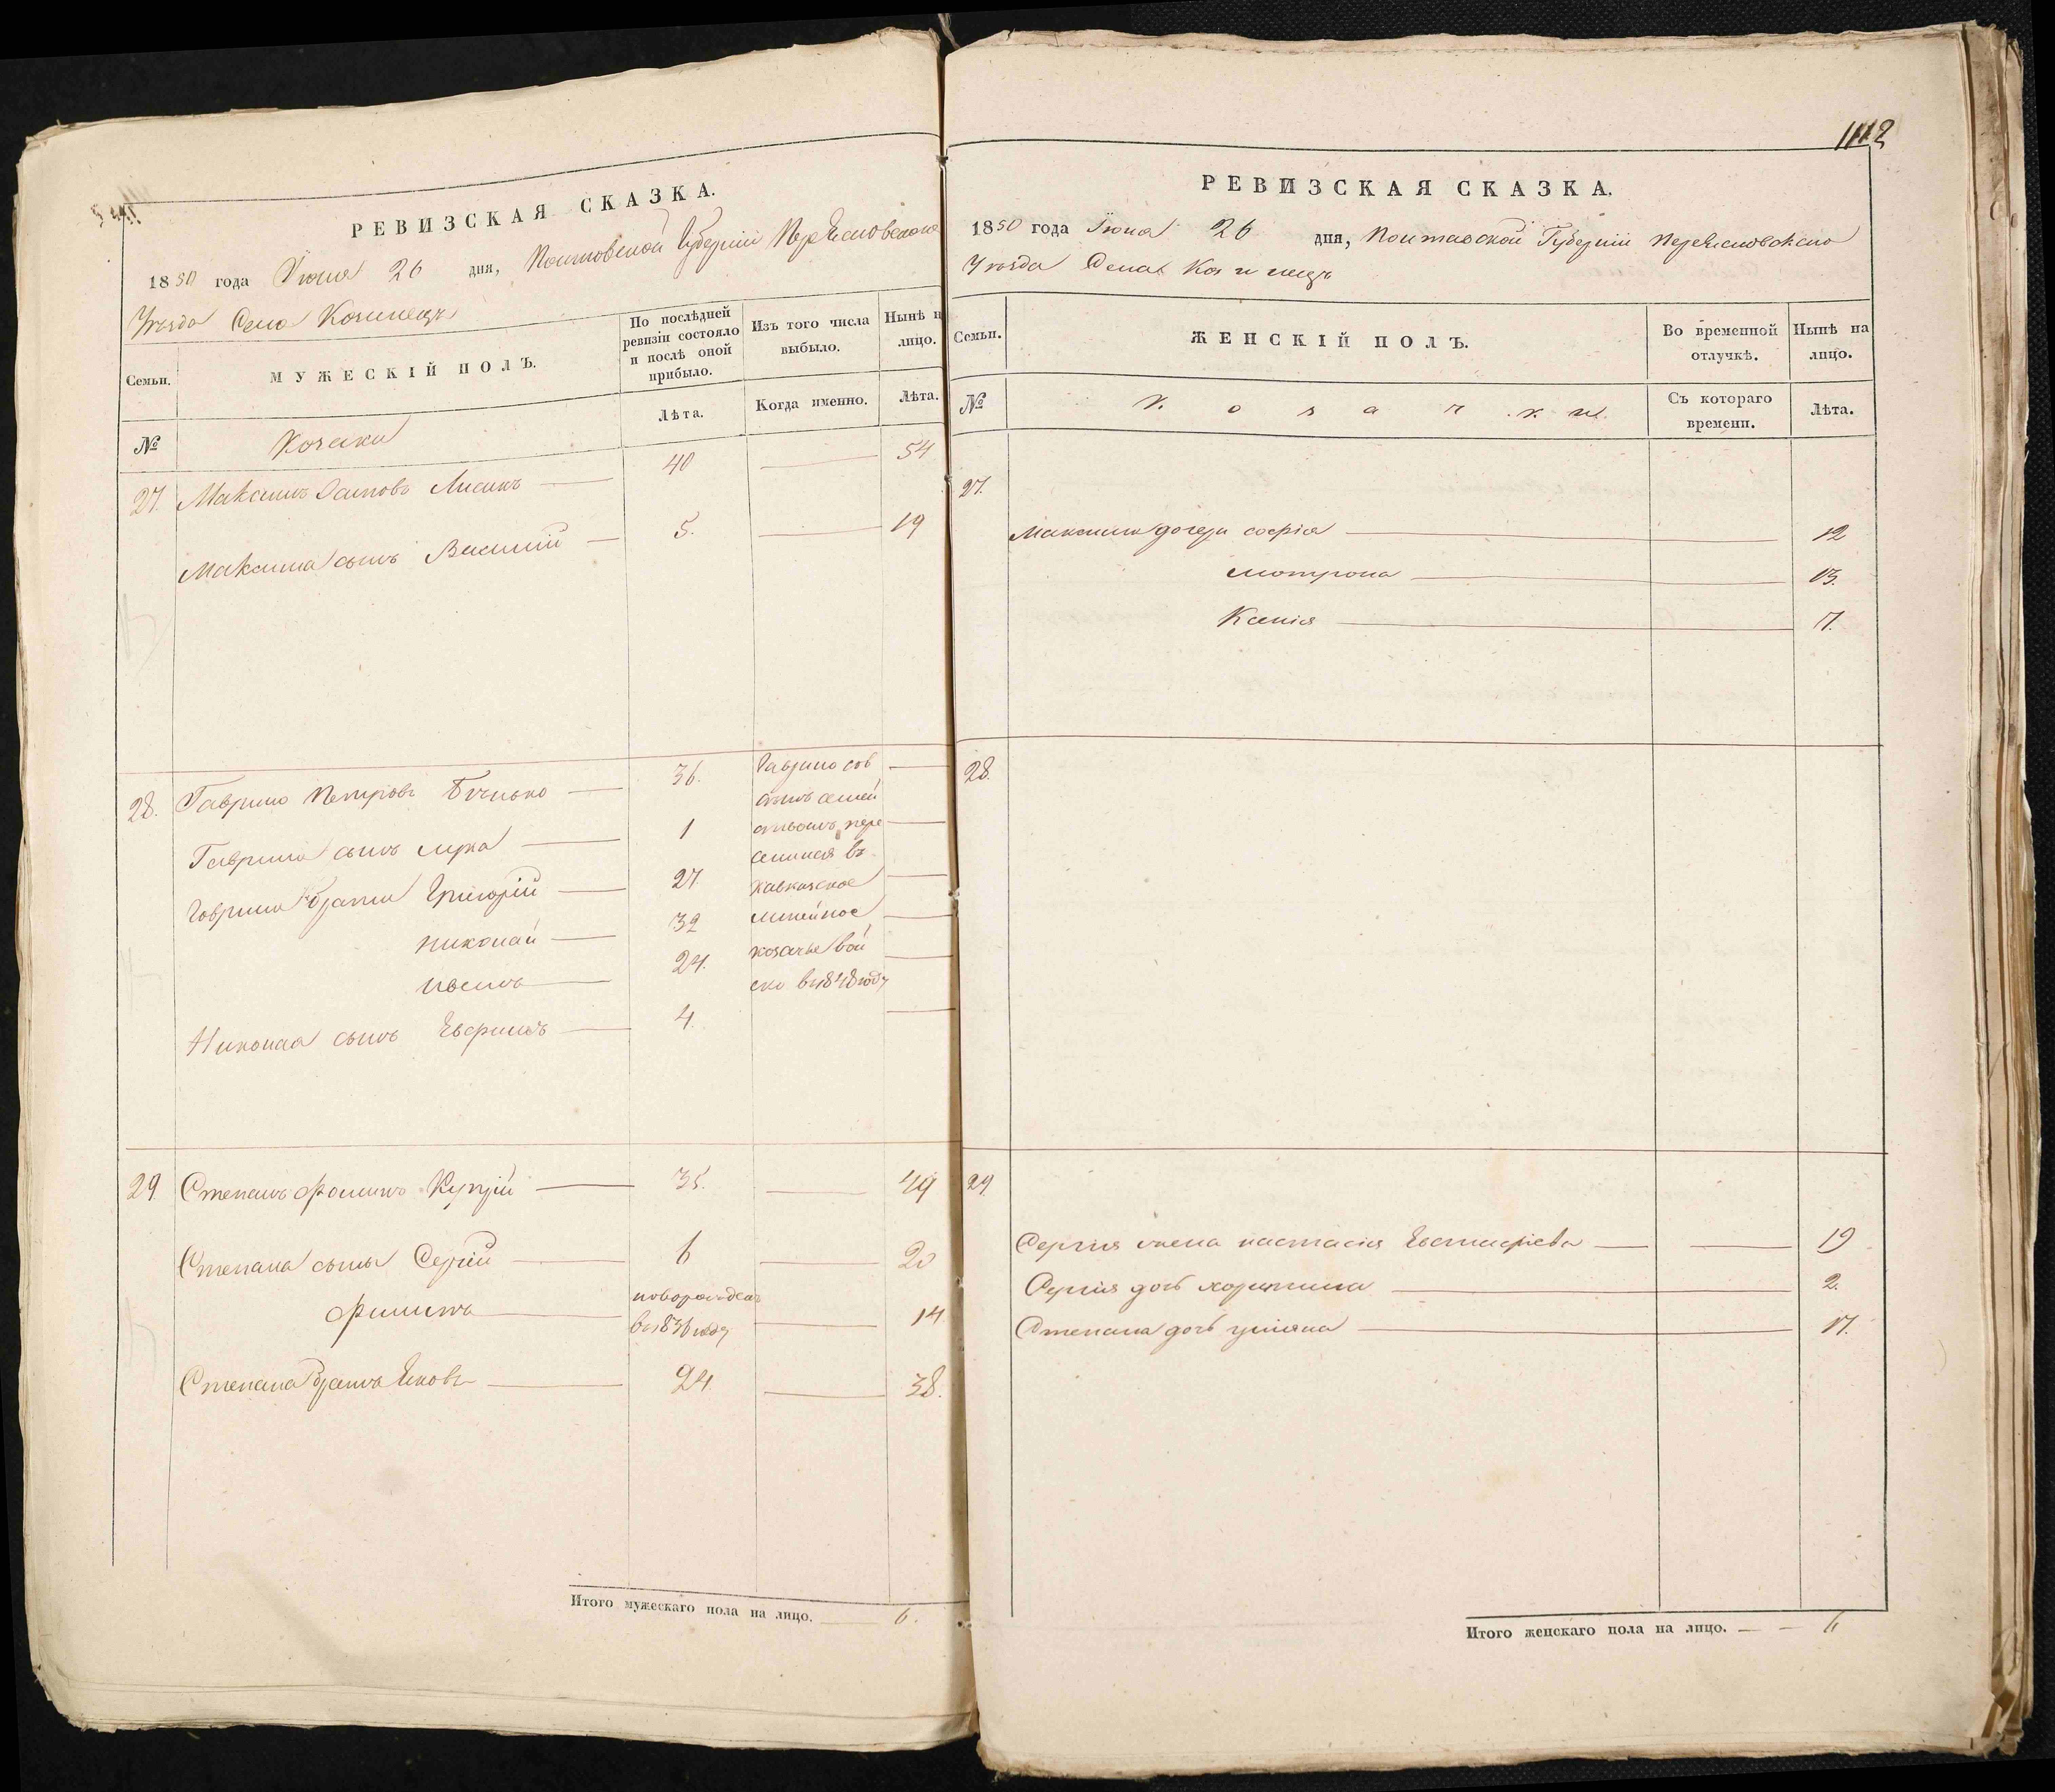 РЕВИЗСКАЯ СКАЗКА.
1850 года Іюня 26 дня, Полтавской Губерніи Переясловскаго
Уезда Села Козинецъ
Семьи.
МУЖЕСКІЙ ПОЛЪ.
По послѣдней ревизіи состояло и послѣ оной прибыло.
Изъ того числа выбыло.
Нынѣ н лицо.
№
Козаки
Лѣта.
Когда именно.
Лѣта.
27. Максимъ Осиповъ 40 54
Максима сынъ Василий 5. 19
28. Гаврило Петровъ 36. Гаврило съ
Гаврила сынъ Лука 1 семей
ствомъ пере
селился въ
Гаврила братья Григорій 27 кавказское
Николай 32 линейное
Иванъ 24. козачье вой
ско въ 1848 году
Николая сынъ Ефимъ 4.
29. Степанъ Фоминъ Куприй 35. 49
Степана сыны Сергій 6 20
Филипъ новорожден въ 1836 году 14
Степана братъ Яковъ 24. 38.
Итого мужескаго пола на лицо. 6.
1112
РЕВИЗСКАЯ СКАЗКА.
1850 года Іюня 26 дня, Полтавской Губерніи Переясловскаго
Уезда Села Козинецъ
Семьи.
ЖЕНСКІЙ ПОЛЪ.
Во временной отлучкѣ.
Нынѣ на лицо.
№
Козачки.
Съ котораго времени.
Лѣта.
27.
Максима дочери софія 12
мотрона 13.
Ксенія 17.
28.
29
Сергія жена настасія Евстафіева 19
Сергія дочь харитина 2.
Степана дочь уліяна 17.
Итого женскаго пола на лицо. 6